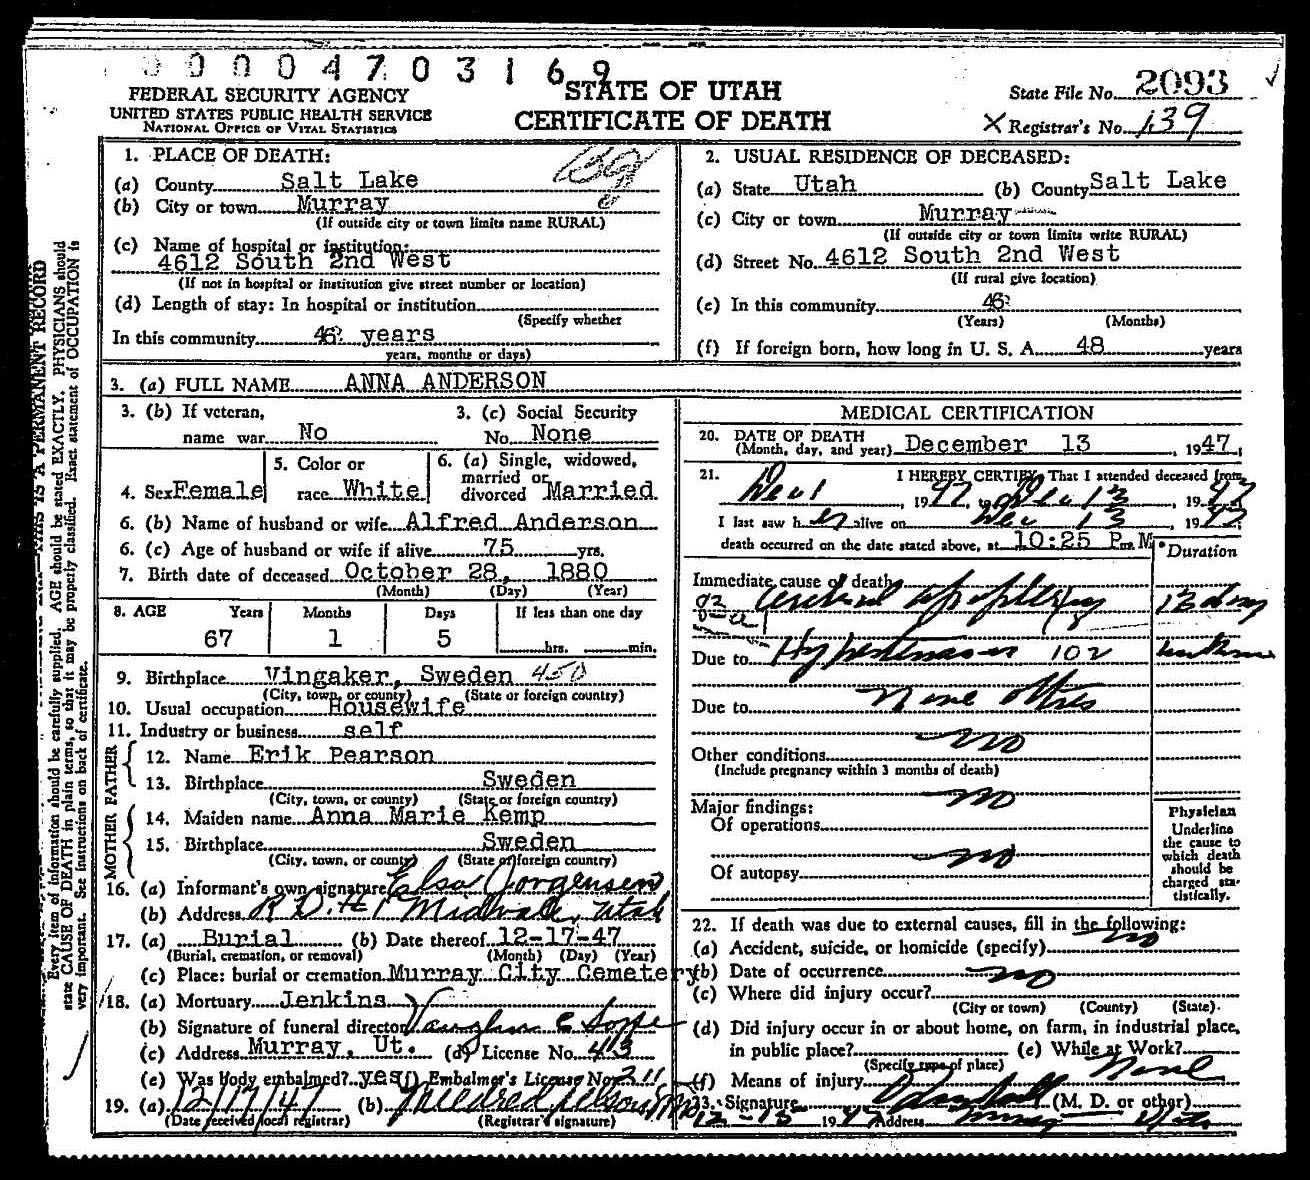 00004703169
FEDERAL SECURITY AGENCY
UNITED STATES PUBLIC HEALTH SERVICE
NATIONAL OFFICE OF VITAL STATISTICS
STATE OF UTAH
CERTIFICATE OF DEATH
State File No. 2093
X Registrar's No. 139
Every item of information should be carefully supplied. AGE should be stated EXACTLY. PHYSICIANS should
state CAUSE OF DEATH in plain terms, so that it may be properly classified. Exact statement of OCCUPATION is
very important. See instructions on back of certificate.
THIS IS A PERMANENT RECORD
1. PLACE OF DEATH:
(a) County Salt Lake
(b) City or town Murray
(If outside city or town limits name RURAL)
(c) Name of hospital or institution:
4612 South 2nd West
(If not in hospital or institution give street number or location)
(d) Length of stay: In hospital or institution
(Specify whether
In this community 46 years
years, months or days)
2. USUAL RESIDENCE OF DECEASED:
(a) State Utah (b) County Salt Lake
(c) City or town Murray
(If outside city or town limits write RURAL)
(d) Street No. 4612 South 2nd West
(If rural give location)
(e) In this community 46
(Years) (Months)
(f) If foreign born, how long in U. S. A. 48 years
3. (a) FULL NAME ANNA ANDERSON
3. (b) If veteran,
name war No
3. (c) Social Security
No. None
4. Sex Female
5. Color or
race White
6. (a) Single, widowed,
married or
divorced Married
6. (b) Name of husband or wife Alfred Anderson
6. (c) Age of husband or wife if alive 75 yrs.
7. Birth date of deceased October 28, 1880
(Month) (Day) (Year)
8. AGE Years Months Days If less than one day
67 1 5 hrs. min.
9. Birthplace Vingaker, Sweden 450
(City, town, or county) (State or foreign country)
10. Usual occupation Housewife
11. Industry or business self
FATHER
12. Name Erik Pearson
13. Birthplace Sweden
(City, town, or county) (State or foreign country)
MOTHER
14. Maiden name Anna Marie Kemp
15. Birthplace Sweden
(City, town, or county) (State or foreign country)
16. (a) Informant's own signature Elsa Jorgensen
(b) Address R.D.#1 Midvale, Utah
17. (a) Burial (b) Date thereof 12-17-47
(Burial, cremation, or removal) (Month) (Day) (Year)
(c) Place: burial or cremation Murray City Cemetery
18. (a) Mortuary Jenkins
(b) Signature of funeral director Vaughn E
(c) Address Murray, Ut. (d) License No. 413
(e) Was body embalmed? yes (f) Embalmer's License No. 211
19. (a) 12/17/47 (b) Mildred
(Date received local registrar) (Registrar's signature)
MEDICAL CERTIFICATION
20. DATE OF DEATH
(Month, day, and year) December 13, 1947.
21. I HEREBY CERTIFY, That I attended deceased from
Dec 1, 1947, to Dec 13, 1947
I last saw her alive on Dec 13, 1947
death occurred on the date stated above, at 10:25 P.m. M
Duration
Immediate cause of death
Cerebral apoplexy 13 day
Due to Hypertension 102 unknown
Due to None others
no
Other conditions
(Include pregnancy within 3 months of death)
no
Major findings:
Of operations
no
Of autopsy
Physician
Underline
the cause to
which death
should be
charged sta-
tistically.
22. If death was due to external causes, fill in the following:
(a) Accident, suicide, or homicide (specify) no
(b) Date of occurrence no
(c) Where did injury occur?
(City or town) (County) (State).
(d) Did injury occur in or about home, on farm, in industrial place,
in public place? (e) While at Work?
(Specify type of place)
(f) Means of injury None
23. Signature (M. D. or other)
12-15 1947 Address Murray Utah